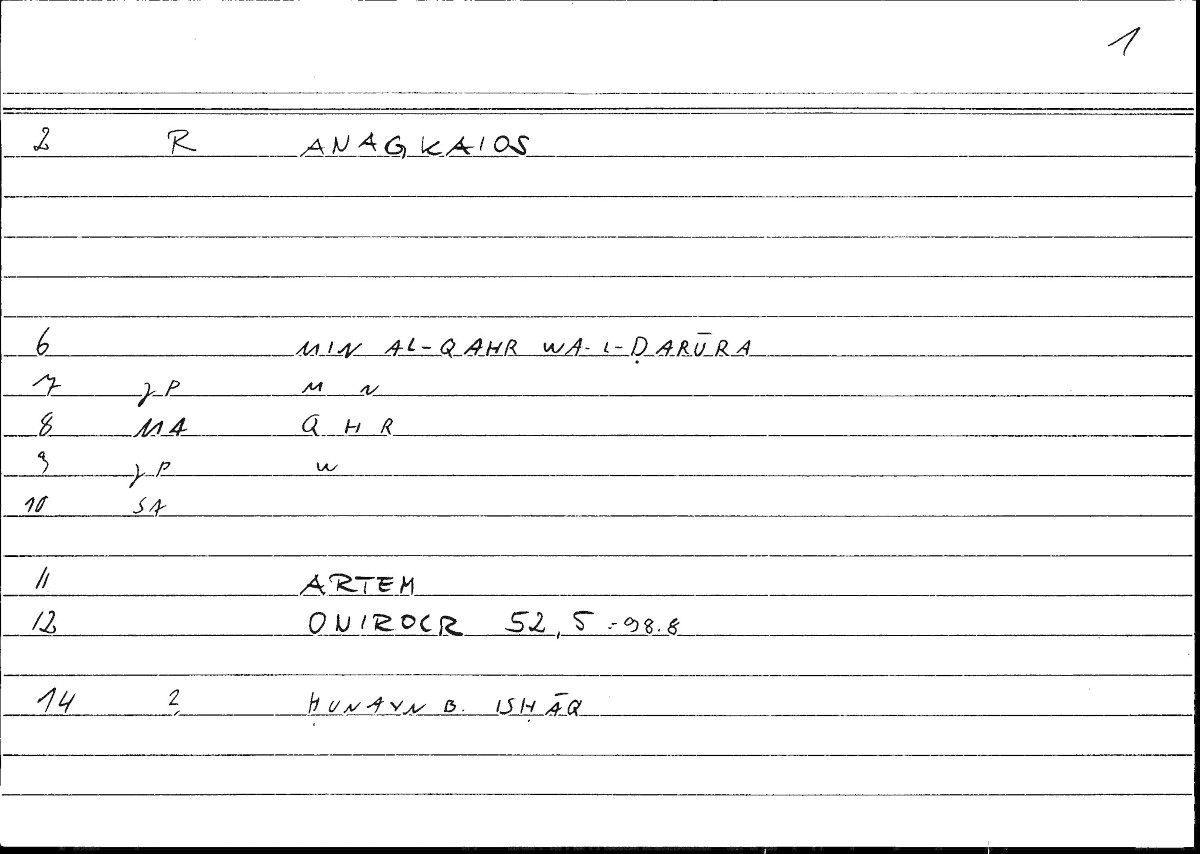 1
2 R ANAGKAIOS
6 MIN AL-QAHR WA-L-ḌARŪRA
7 JP M N
8 MA Q H R
9 JP W
10 SA
11 ARTEM
12 ONIROCR 52,5 = 98.8
14 2 ḤUNAYN B. ISḤĀQ